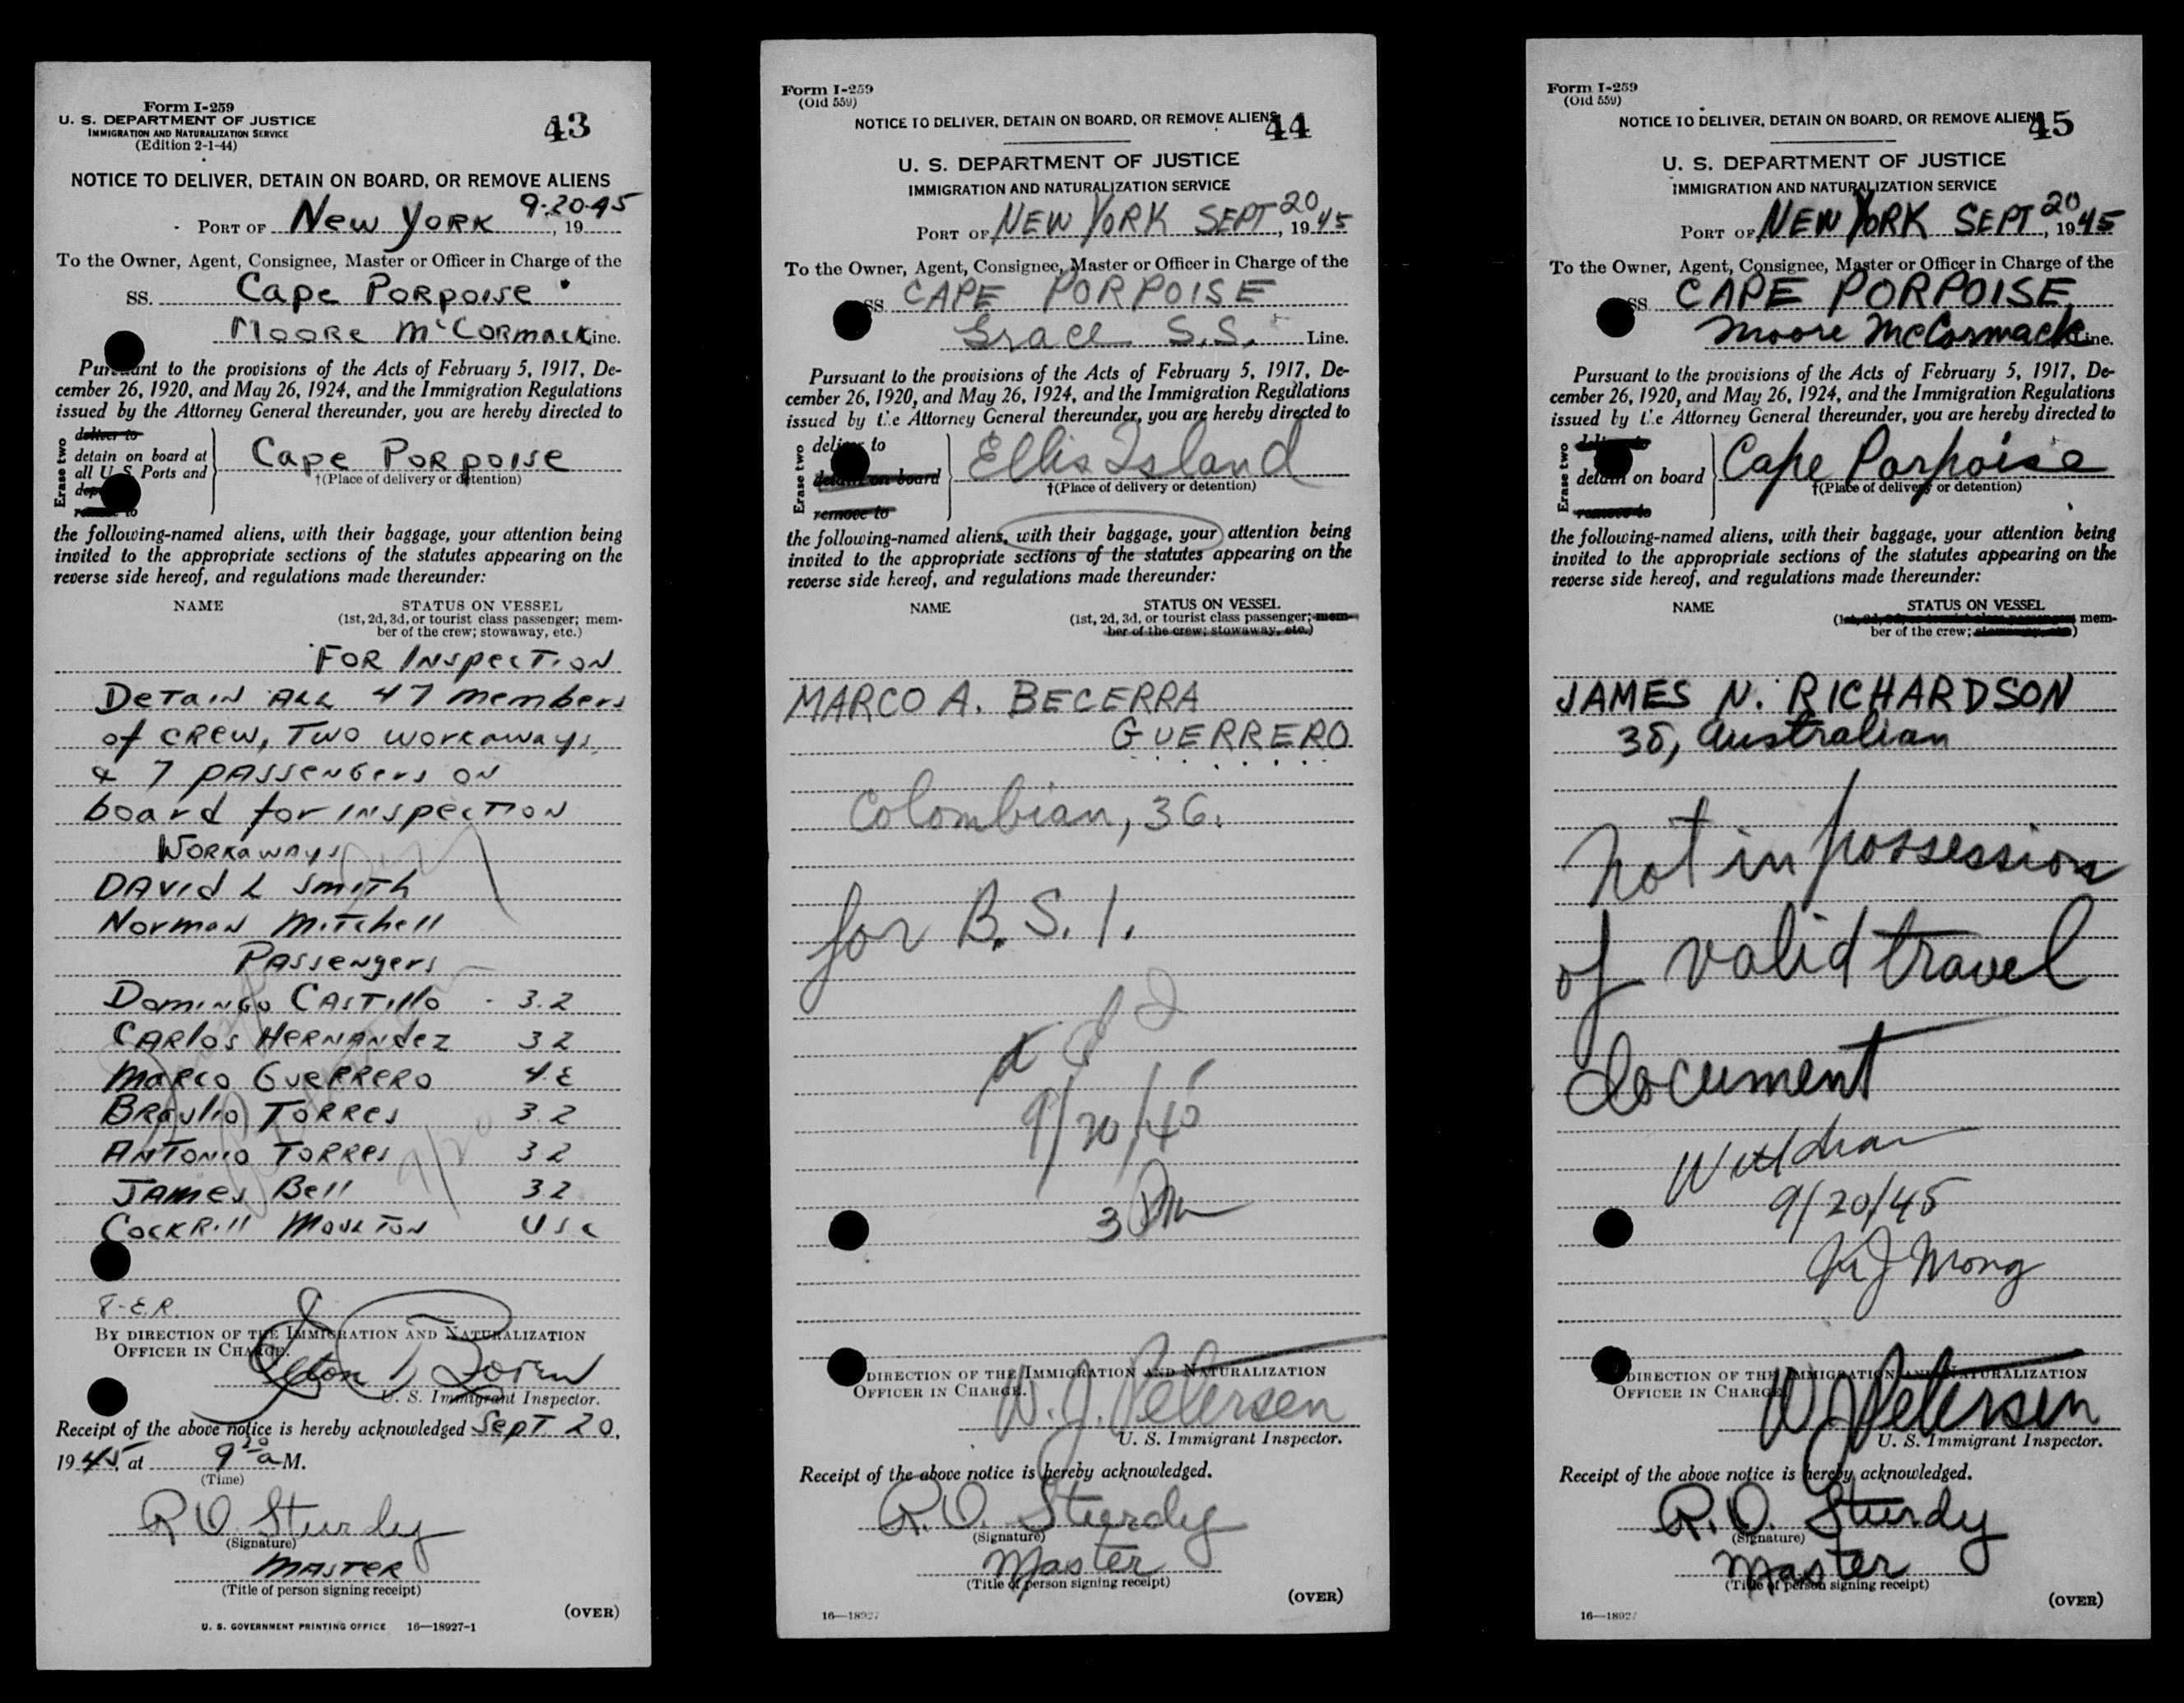 Form I-259
U. S. DEPARTMENT OF JUSTICE
IMMIGRATION AND NATURALIZATION SERVICE
(Edition 2-1-44)
43
NOTICE TO DELIVER, DETAIN ON BOARD, OR REMOVE ALIENS
PORT OF New York 9-20-45, 19
To the Owner, Agent, Consignee, Master or Officer in Charge of the
SS. Cape Porpoise
Moore McCormack Line.
Pursuant to the provisions of the Acts of February 5, 1917, De-
cember 26, 1920, and May 26, 1924, and the Immigration Regulations
issued by the Attorney General thereunder, you are hereby directed to
Erase two
deliver to
detain on board at
all U S Ports and
remove to
Cape Porpoise
†(Place of delivery or detention)
the following-named aliens, with their baggage, your attention being
invited to the appropriate sections of the statutes appearing on the
reverse side hereof, and regulations made thereunder:
NAME STATUS ON VESSEL
(1st, 2d, 3d, or tourist class passenger; mem-
ber of the crew; stowaway, etc.)
FOR INSPECTION
Detain ALL 47 members
of crew, Two workaways
& 7 passengers on
board for inspection
Workaways
David L Smith
Norman Mitchell
Passengers
Domingo Castillo - 3.2
Carlos Hernandez 32
Marco Guerrero
Braulio Torres 3.2
Antonio Torres 32
James Bell 32
Cockrill Moulton USC
8-E.R.
BY DIRECTION OF THE IMMIGRATION AND NATURALIZATION
OFFICER IN CHARGE.
U. S. Immigrant Inspector.
Receipt of the above notice is hereby acknowledged Sept. 20,
1945, at 9 a M.
(Time)
R O. Sturdy
(Signature)
MASTER
(Title of person signing receipt)
(OVER)
U. S. GOVERNMENT PRINTING OFFICE 16—18927-1
Form I-259
(Old 559)
NOTICE TO DELIVER, DETAIN ON BOARD, OR REMOVE ALIENS
44
U. S. DEPARTMENT OF JUSTICE
IMMIGRATION AND NATURALIZATION SERVICE
PORT OF NEW YORK SEPT 20, 1945
To the Owner, Agent, Consignee, Master or Officer in Charge of the
SS CAPE PORPOISE
Grace S.S. Line.
Pursuant to the provisions of the Acts of February 5, 1917, De-
cember 26, 1920, and May 26, 1924, and the Immigration Regulations
issued by the Attorney General thereunder, you are hereby directed to
Erase two
deliver to
detain on board
remove to
Ellis Island
†(Place of delivery or detention)
the following-named aliens, with their baggage, your attention being
invited to the appropriate sections of the statutes appearing on the
reverse side hereof, and regulations made thereunder:
NAME STATUS ON VESSEL
(1st, 2d, 3d, or tourist class passenger; mem-
ber of the crew; stowaway, etc.)
MARCO A. BECERRA
GUERRERO
Colombian, 36.
for B.S.I.
9/20/45
3 PM
DIRECTION OF THE IMMIGRATION AND NATURALIZATION
OFFICER IN CHARGE.
W. J. Petersen
U. S. Immigrant Inspector.
Receipt of the above notice is hereby acknowledged.
R. O. Sturdy
(Signature)
Master
(Title of person signing receipt)
(OVER)
16—18927
Form I-259
(Old 559)
NOTICE TO DELIVER, DETAIN ON BOARD, OR REMOVE ALIENS
45
U. S. DEPARTMENT OF JUSTICE
IMMIGRATION AND NATURALIZATION SERVICE
PORT OF NEW YORK SEPT 20, 1945
To the Owner, Agent, Consignee, Master or Officer in Charge of the
SS CAPE PORPOISE
Moore McCormack Line.
Pursuant to the provisions of the Acts of February 5, 1917, De-
cember 26, 1920, and May 26, 1924, and the Immigration Regulations
issued by the Attorney General thereunder, you are hereby directed to
Erase two
deliver to
detain on board
remove to
Cape Porpoise
†(Place of delivery or detention)
the following-named aliens, with their baggage, your attention being
invited to the appropriate sections of the statutes appearing on the
reverse side hereof, and regulations made thereunder:
NAME STATUS ON VESSEL
(1st, 2d, 3d, or tourist class passenger; mem-
ber of the crew; stowaway, etc.)
JAMES N. RICHARDSON
38, Australian
not in possession
of valid travel
document
Withdrawn
9/20/45
Mong
DIRECTION OF THE IMMIGRATION AND NATURALIZATION
OFFICER IN CHARGE
W J Petersen
U. S. Immigrant Inspector.
Receipt of the above notice is hereby acknowledged.
R. O. Sturdy
(Signature)
Master
(Title of person signing receipt)
(OVER)
16—18927